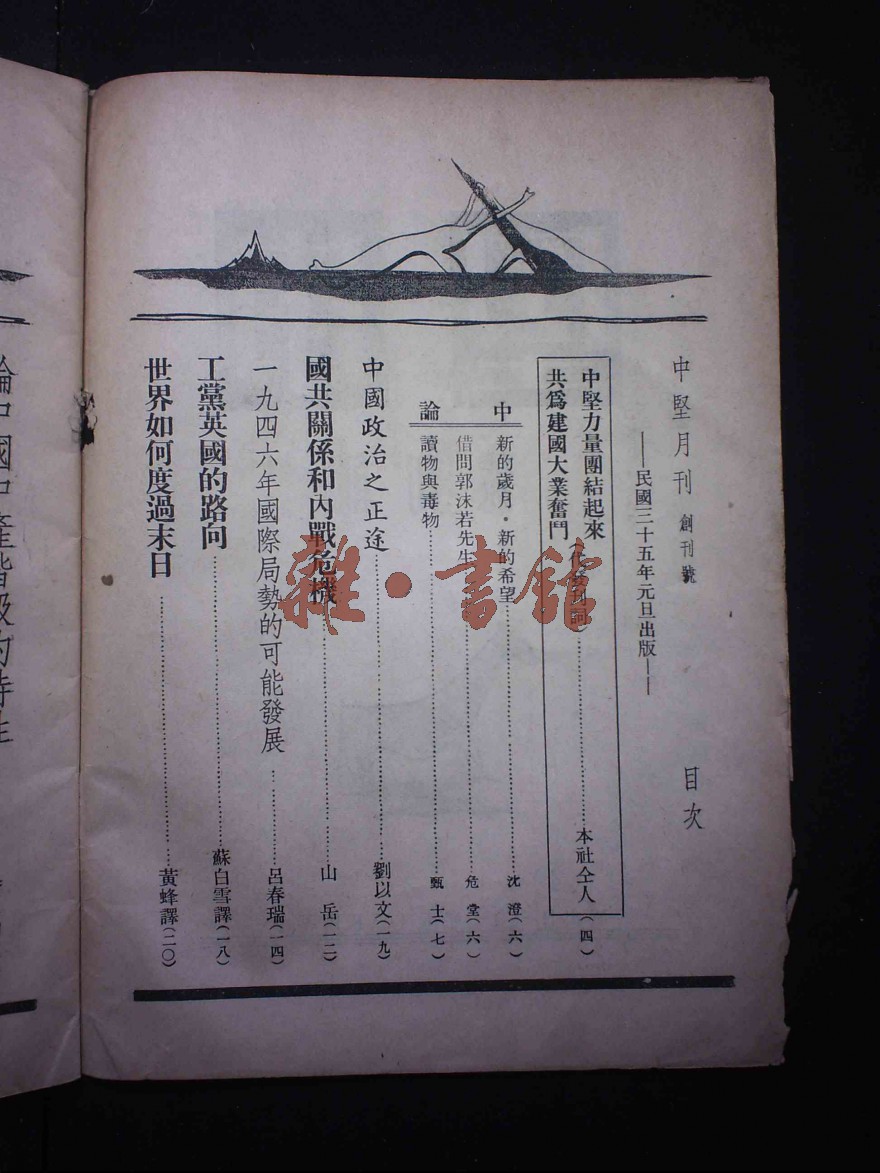 中堅月刊 創刊號
——民國三十五年元旦出版——
目次
中堅力量團結起來
共爲建國大業奮鬥(代發刊詞)……本社仝人(四)
中論
新的歲月·新的希望……沈澄(六)
借問郭沫若先生……危堂(六)
讀物與毒物……甄士(七)
中國政治之正途……劉以文(一九)
國共關係和內戰危機……山岳(一二)
一九四六年國際局勢的可能發展……呂春瑞(一四)
工黨英國的路向……蘇白雪譯(一八)
世界如何度過末日……黃蜂譯(二〇)
論中國中產階級的特性
雜·書館